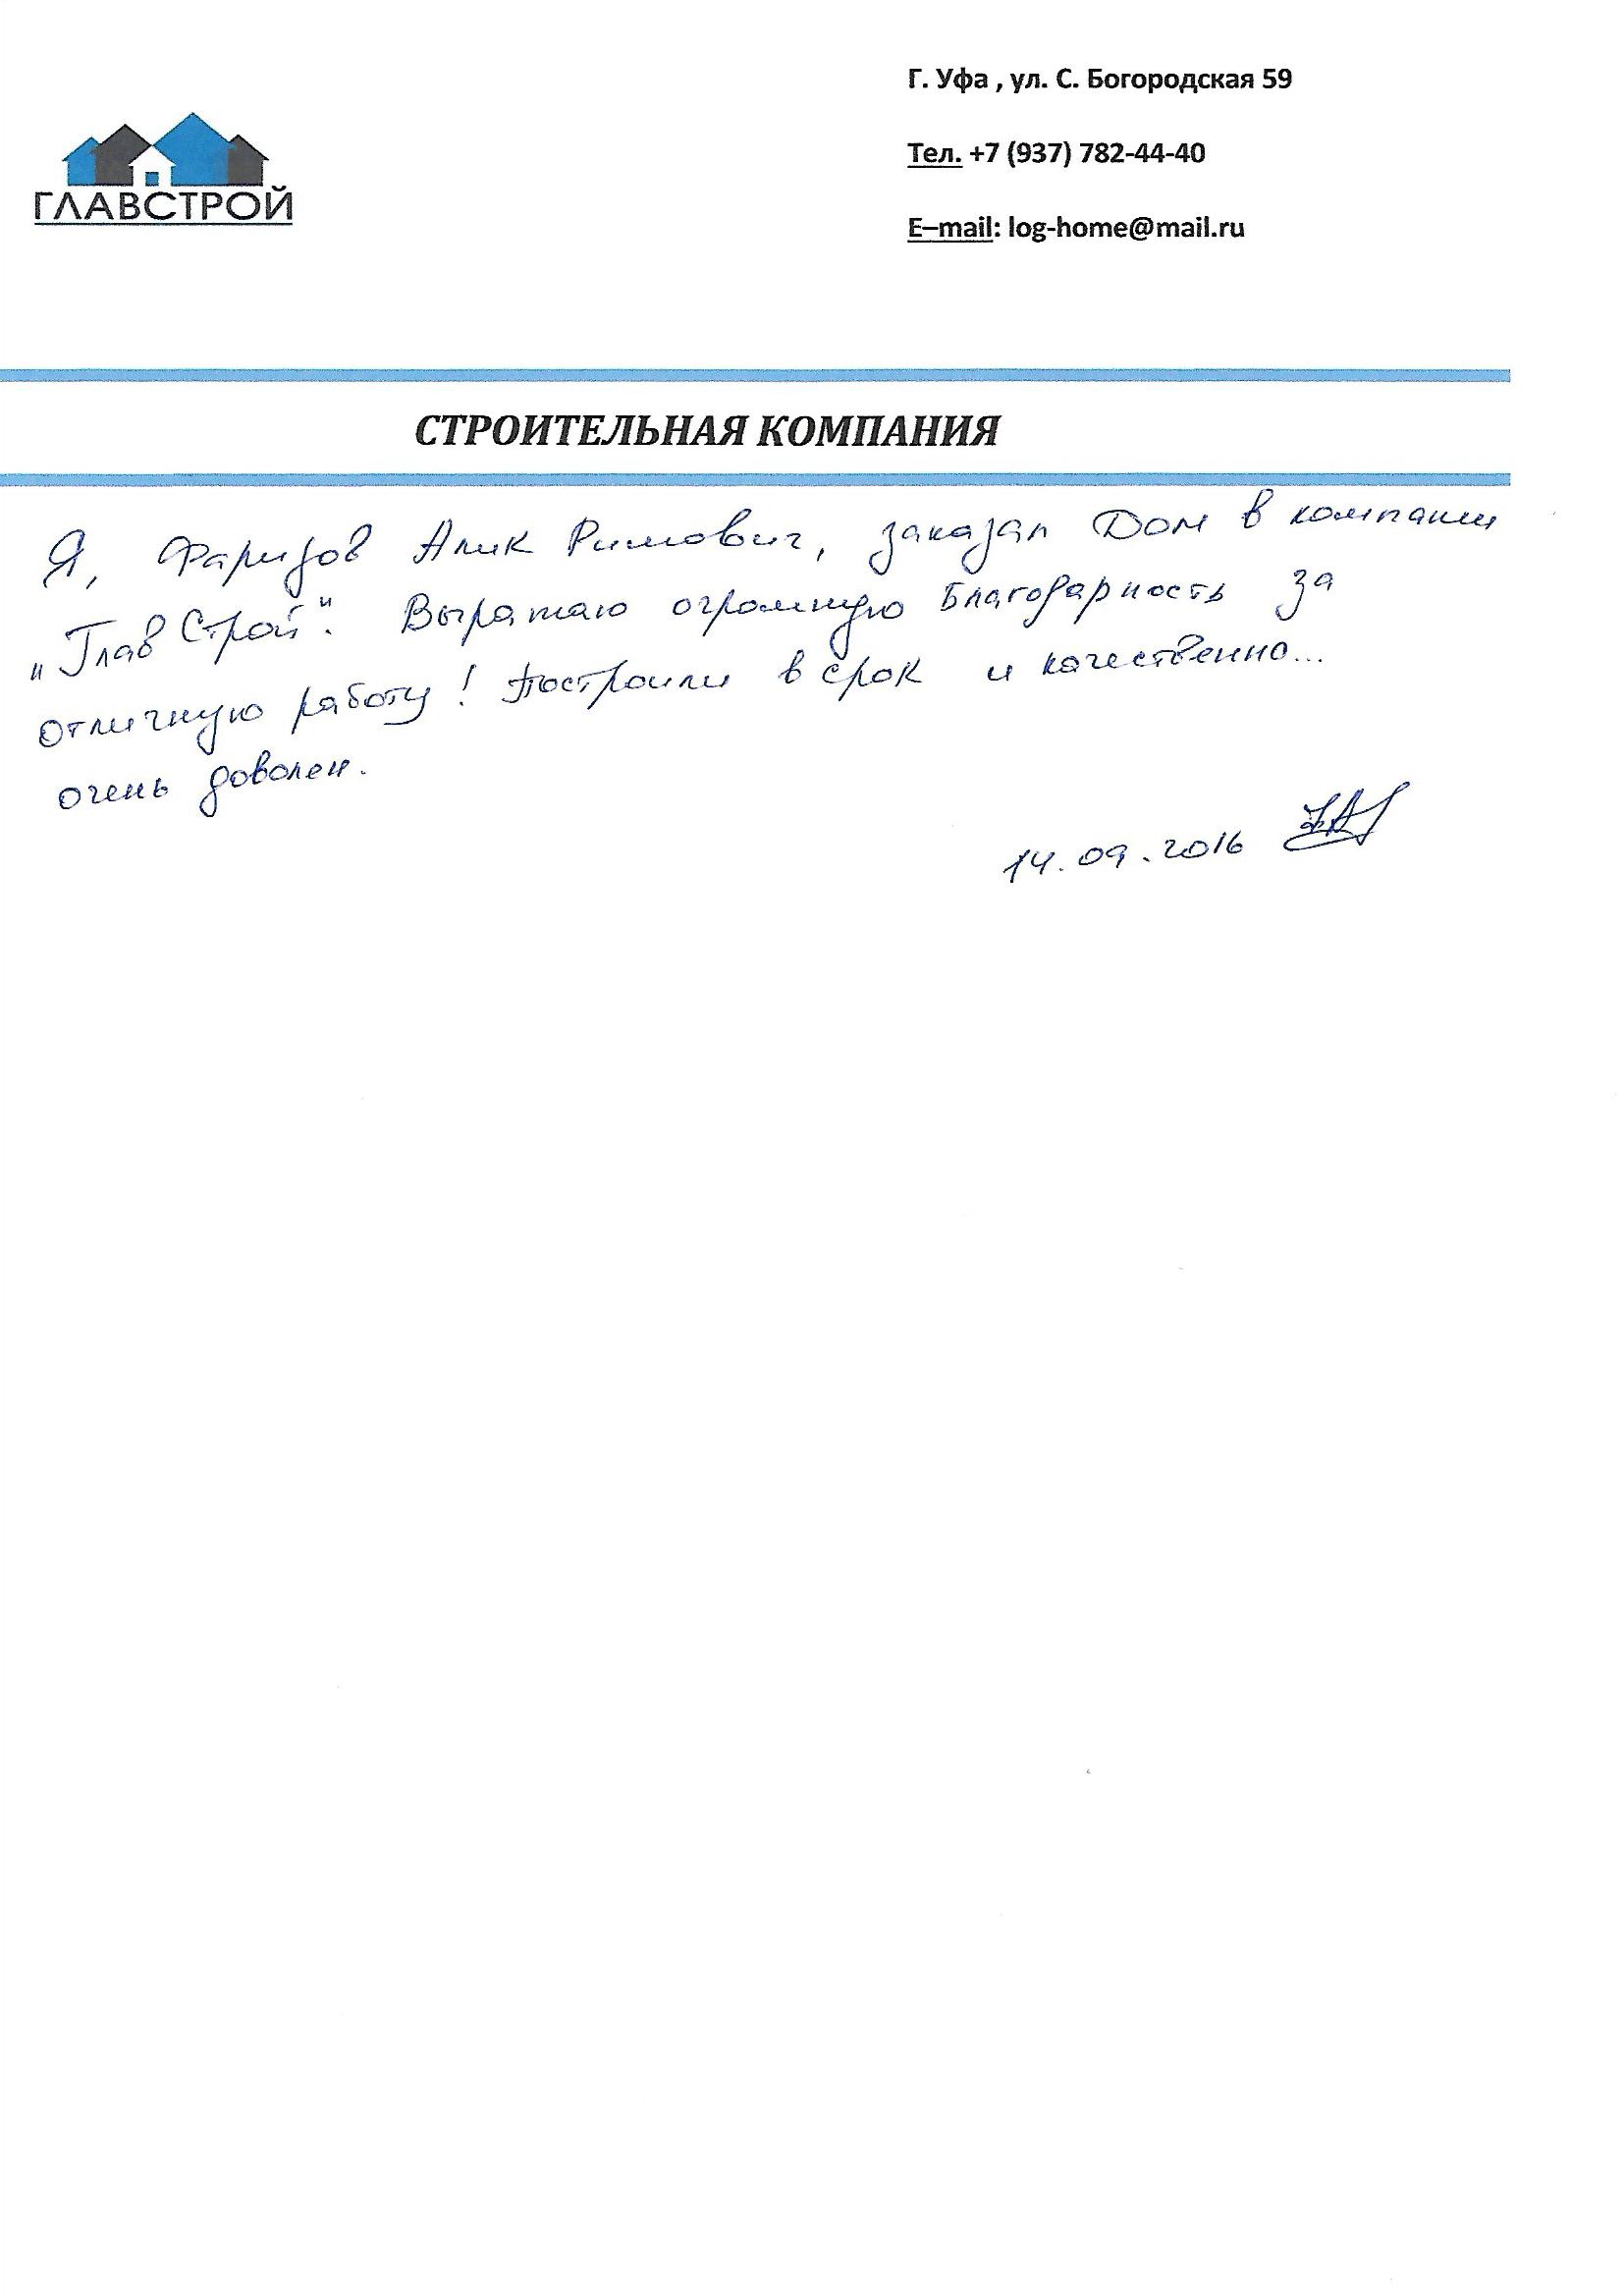 Г. Уфа , ул. С. Богородская 59
ГЛАВСТРОЙ
Тел. +7 (937) 782-44-40
E–mail: log-home@mail.ru
СТРОИТЕЛЬНАЯ КОМПАНИЯ
Я, Фаризов Алик Римович, заказал Дом в компании
„Глав Строй". Выражаю огромную Благодарность за
отличную работу! Построили в срок и качественно...
очень доволен.
14.09.2016